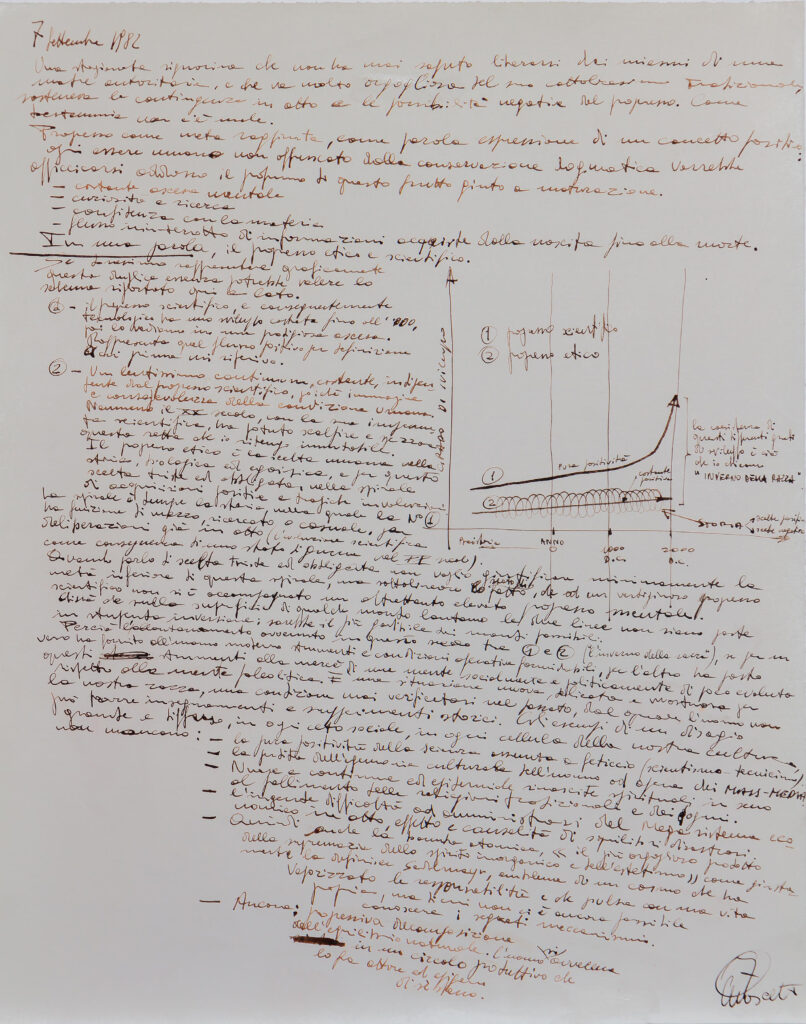 7 settembre 1982
Una stagionata signorina che non ha mai saputo liberarsi dai miasmi di una
madre autoritaria, e che va molto orgogliosa del suo cattolicesimo tradizionale,
sosteneva la contingenza in atto e le possibilità negative del progresso. Come
testimonia non c'è male.
Progresso come meta raggiunta, come parola espressione di un concetto positivo,
ogni essere umano non offuscato dalla conservazione dogmatica vorrebbe
appiccicarsi addosso il profumo di questo frutto giunto a maturazione.
— costante ascesa mentale
— curiosità e ricerca
— confidenza con la materia
— flusso ininterrotto di informazioni acquisite dalla nascita fino alla morte.
In una parola, il progresso etico e scientifico.
Se dovessimo rappresentare graficamente
questa duplice essenza potrebbe valere lo
schema riportato qui a lato.
① - il progresso scientifico, e conseguentemente
tecnologico ha uno sviluppo costante fino all'800,
poi lo vediamo in una prodigiosa ascesa.
Rappresenta quel flusso positivo per definizione
a cui prima mi riferivo.
② - Un lentissimo continuum, costante, indipen
dente dal progresso scientifico, poiché immagine
e consapevolezza della condizione umana.
Nemmeno il XX secolo, con la sua
scientifica, ha potuto scalfire e
questa retta che io ritengo immutabile.
Il progresso etico è la scelta umana nella
storia, biologica ed egoistica, e per questo
scelta triste ed obbligata, nella spirale
di acquisizioni positive e tragiche involuzioni.
La spirale è dunque la storia, nella quale la N° ①
ha funzione di mezzo, ricercato o casuale, per
deliberazioni già in atto (rivoluzione scientifica
come conseguenza di uno stato di guerra nel XX secolo).
Quando parlo di scelta triste ed obbligata non voglio giustificare minimamente la
metà inferiore di questa spirale, ma sottolineare il fatto, che ad un vertiginoso progresso
scientifico non si è accompagnato un altrettanto elevato progresso mentale.
Chissà che sulla superficie di qualche mondo lontano le due linee non siano poste
in stupenda inversione: sarebbe il più felice dei mondi possibili.
Perciò l'allontanamento avvenuto in questo secolo tra ① e ② (l'inverno della razza), se per un
verso ha fornito all'uomo moderno strumenti e condizioni operative formidabili, per l'altro ha posto
questi strumenti alla mercé di una mente socialmente e politicamente di poco evoluta
rispetto alla mente paleolitica. È una situazione nuova, delicata e mostruosa per
la nostra razza, una condizione mai verificatasi nel passato, dal quale l'uomo non
può trarre insegnamenti e suggerimenti storici. Gli esempi di un disagio
grande e diffuso, in ogni ceto sociale, in ogni cellula della nostra cultura,
non mancano:
— la pura positività della scienza assunta a feticcio (scientismo-tecnicismo)
— la perdita dell'egemonia culturale dell'uomo ad opera dei MASS-MEDIA
— Nuove e continue ed epidemiche rinascite spirituali in seno
al fallimento delle religioni tradizionali e dei dogmi.
— L'ingente difficoltà ad amministrarsi del mega sistema eco
nomico in atto, effetto e causalità di squilibri disastrosi.
— Quindi anche la bomba atomica, « il più orgoglioso prodotto
della supremazia dello spirito inorganico e dell'estetismo » come giusta
mente la definisce Sedlmayr, emblema di un cosmo che ha
vaporizzato le responsabilità e che pulsa con una vita
propria, ma di cui non ci è ancora possibile
conoscere i segreti meccanismi.
— Ancora: progressiva decomposizione
dell'equilibrio naturale. L'uomo si avvelena
in un circolo produttivo che
lo fa attore ed
di se stesso.
GRADO DI SVILUPPO
① progresso scientifico
② progresso etico
① Pura positività
costante positiva
②
la coesistenza di
questi differenti gradi
di sviluppo è ciò
che io chiamo
"INVERNO DELLA RAZZA"
STORIA
scelte positive
scelte negative
Preistoria
ANNO
0
1000
D.C.
2000
D.C.